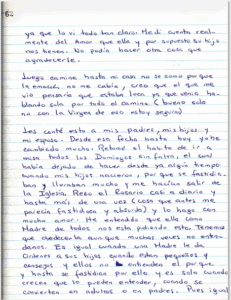 62
ya que lo vi todo tan claro. Me di cuenta real-
mente del Amor que ella y por supuesto su hijo
nos tienen. No podía hacer otra cosa que
agradecerle.
Luego camine hasta mi casa no se como por que
la emoción, no me cabía, creo que el que me
vió pensaría que estaba loca ya que venía ha-
blando sola por todo el camino (bueno sola
no con la Virgen de eso estoy segura)
Les conté esto a mis padres, mis hijos y
mi esposo. Desde esa fecha hasta hoy yo he
cambiado mucho. Retomé el habito de ir a
misa todos los Domingos sin falta, el cual
había dejado de hacer desde ya algún tiempo
cuando mis hijos nacieron, por que se fastidia-
ban y lloraban mucho y me hacían salir de
la Iglesia. Rezo el Rosario casi a diario y
hasta más de una vez (cosa que antes me
parecía fastidiosa y aburrida) y lo hago con
mucho amor. He entendido que ella como
Madre de todos nos esta pidiendo esto. Tenemos
que obedecerla aunque muchas veces no enten-
damos. Es igual cuando una Madre le da
Ordenes a sus hijos cuando están pequeños y
consejos y ellos no entienden el por que
y hasta se fastidian por ello y es solo cuando
crecen que lo pueden entender, cuando se
convierten en adultos o en padres. Pues igual